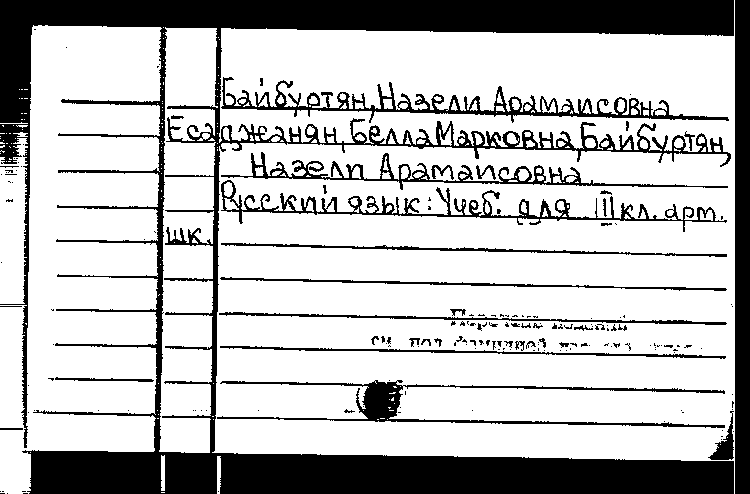 Байбуртян, Назели Арамаисовна.
Есаджанян, Белла Марковна, Байбуртян,
Назели Арамаисовна.
Русский язык: Учеб. для III кл. арм.
шк.
см. под фамилией